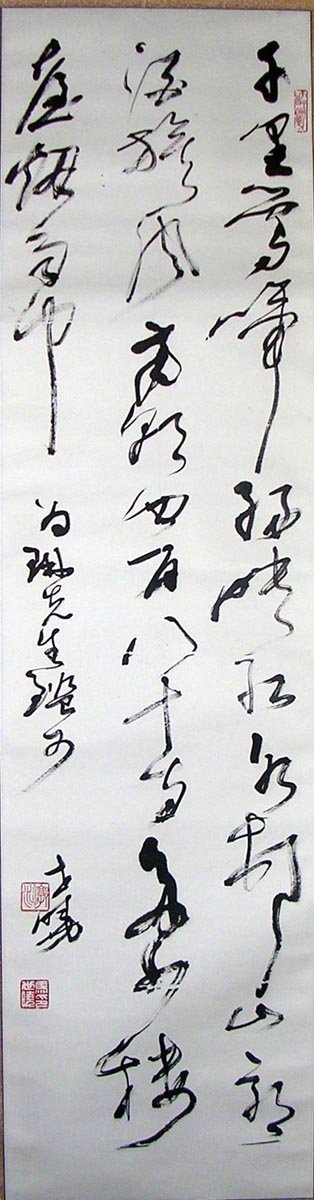 千里鶯啼綠映紅水村山郭
酒旗風南朝四百八十寺多少樓
臺煙雨中
先生鑑
世曉